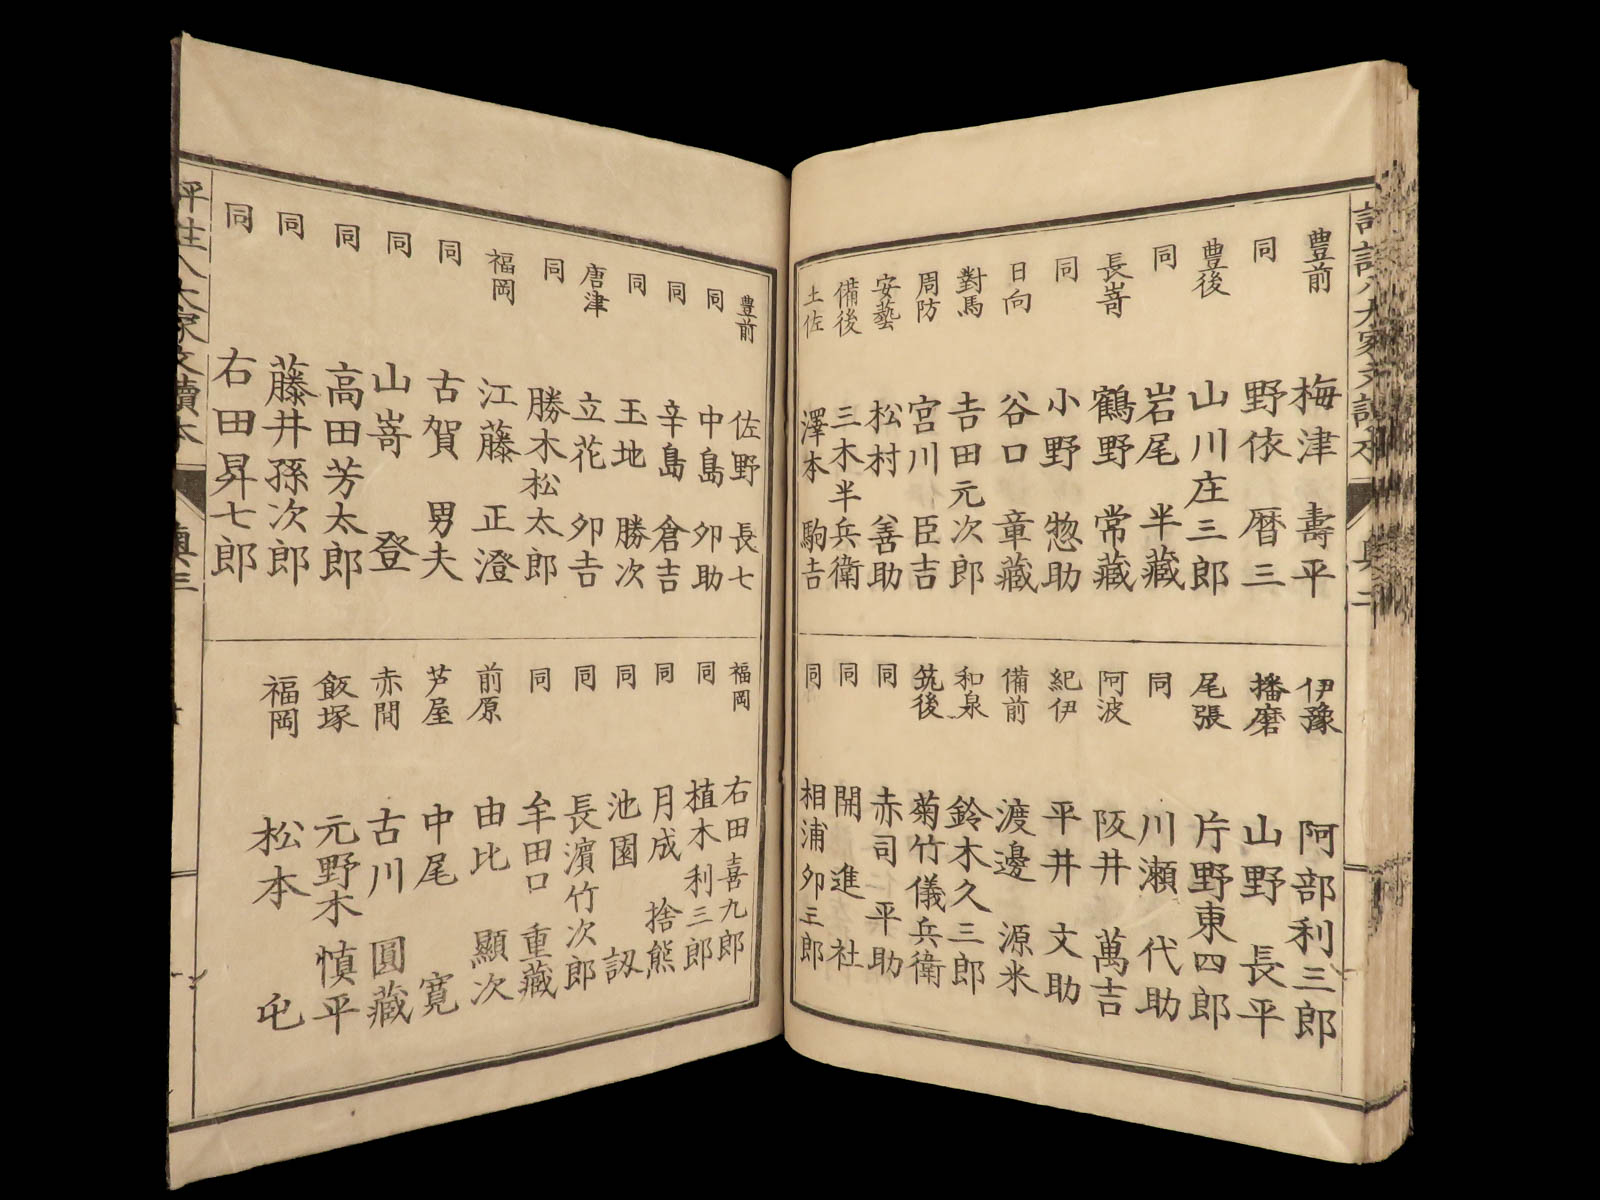 豊前 梅津壽平
同 野依暦三
豊後 山川庄三郎
同 岩尾半藏
長嵜 鶴野常藏
同 小野惣助
日向 谷口章藏
對馬 吉田元次郎
周防 宮川臣吉
安藝 松村善助
備後 三木半兵衛
土佐 澤本駒吉
伊豫 阿部利三郎
播磨 山野長平
尾張 片野東四郎
同 川瀬代助
阿波 阪井萬吉
紀伊 平井文助
備前 渡邊源米
和泉 鈴木久三郎
筑後 菊竹儀兵衛
同 赤司平助
同 開進社
同 相浦卯三郎
豊前 佐野長七
同 中島卯助
同 辛島倉吉
同 玉地勝次
唐津 立花卯吉
同 勝木松太郎
福岡 江藤正澄
同 古賀男夫
同 山嵜登
同 高田芳太郎
同 藤井孫次郎
同 右田昇七郎
福岡 右田喜九郎
同 植木利三郎
同 月成捨熊
同 池園
同 長濵竹次郎
同 牟田口重藏
前原 由比顯次
芦屋 中尾寛
赤間 古川圓藏
飯塚 元野木慎平
福岡 松本屯
評註八大家文讀本 奥三